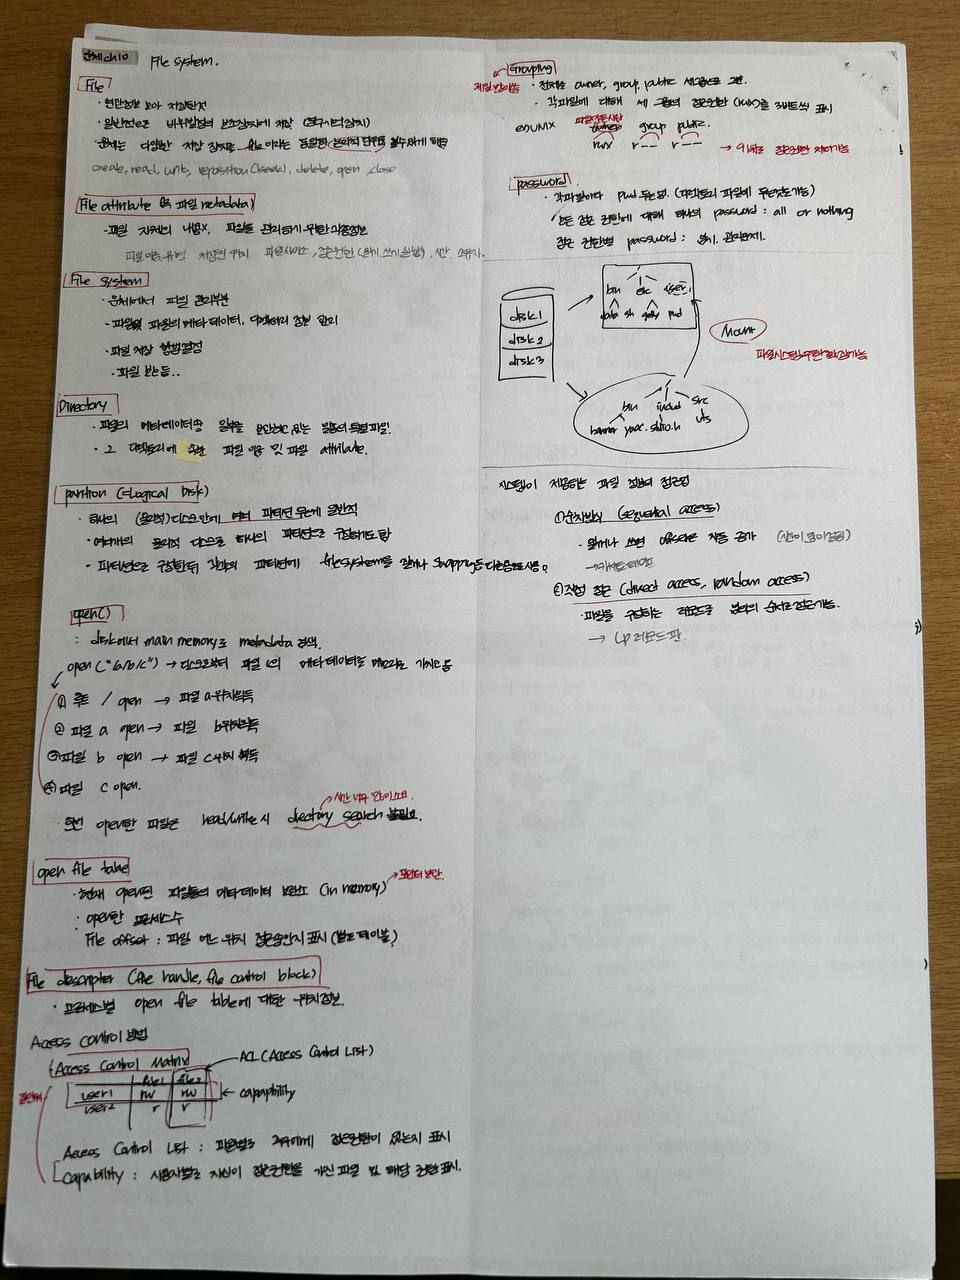 운체 ch10 File system.
File
· 연관정보 모아 저장한것
· 일반적으로 비휘발성의 보조장치에 저장
· 운체는 다양한 저장 장치를 file이라는 동일한 논리적 단위로 볼수있게 해줌
create, read, write, reposition (lseek), delete, open, close
File attribute (= 파일 metadata)
· 파일 자체의 내용x, 파일을 관리하기 위한 각종정보
파일이름, 유형, 저장된 위치, 파일사이즈, 접근권한 (읽기, 쓰기, 실행), 시간, 소유자.
File system
· 운체에서 파일 관리부분
· 파일및 파일의 메타 데이터, 디렉터리 정보 관리
· 파일 저장 방법결정
· 파일 보호등..
Directory
· 파일의 메타데이터중 일부를 보관하고있는 일종의 특별파일.
· 그 디렉토리에 속한 파일 이름 및 파일 attribute.
partition (=Logical Disk)
· 하나의 (물리적)디스크안에 여러 파티션 두는게 일반적
· 여러개의 물리적 디스크를 하나의 파티션으로 구성하기도함
· 파티션으로 구성한뒤 각각의 파티션에 file system을 깔거나 swapping등 다른용도로 사용.
open()
: disk에서 main memory로 metadata 탑재.
open ("a/b/c") → 디스크로부터 파일 c의 메타데이터를 메모리로 가지고옴
① 루트 / open → 파일 a 위치획득
② 파일 a open → 파일 b위치획득
③ 파일 b open → 파일 c위치 획득
④ 파일 c open.
시간 너무 많이소요
· 한번 open한 파일은 read/write시 directory search 불필요.
open file table
· 현재 open된 파일들의 메타데이터 보관소 (in memory) → 포인터 보관.
: open한 프로세스수
File offset : 파일 어느 위치 접근중인지 표시 (별도 테이블)
File descripter (file handle, file control block)
· 프로세스별 open file table에 대한 위치정보.
Access control 방법
Access Control Matrix
ACL (Access Control LIST)
file1 file2
user1 rw rw ← capability
user2 r r
Access Control List : 파일별로 누구에게 접근권한이 있는지 표시
capability : 사용자별로 자신이 접근권한을 가진 파일 및 해당 권한 표시.
Grouping
제일 많이씀
· 전체를 owner, group, public 세그룹으로 구분.
· 각파일에 대해 세 그룹의 접근권한 (rwx)을 3비트씩 표시
ex) UNIX group public
rwx r-- r-- → 9비트로 접근권한 제어가능
password.
· 각파일마다 pwd 두는법. (디렉토리 파일에 두는것도가능)
모든 접근 권한에 대해 하나의 password : all or nothing
접근 권한별 password : 암기, 관리문제.
disk1
disk2
disk3
bin etc user
sh pwd
Mount
bin includ src
banner yacc stdio.h uts
시스템이 제공하는 파일 정보의 접근방식
① 순차방식 (sequential access)
· 읽거나 쓰면 offset은 자동 증가
→ 카세트 테이프
② 직접 접근 (direct access, random access)
· 파일을 구성하는 레코드를 임의의 순서로 접근가능.
→ LP 레코드 판